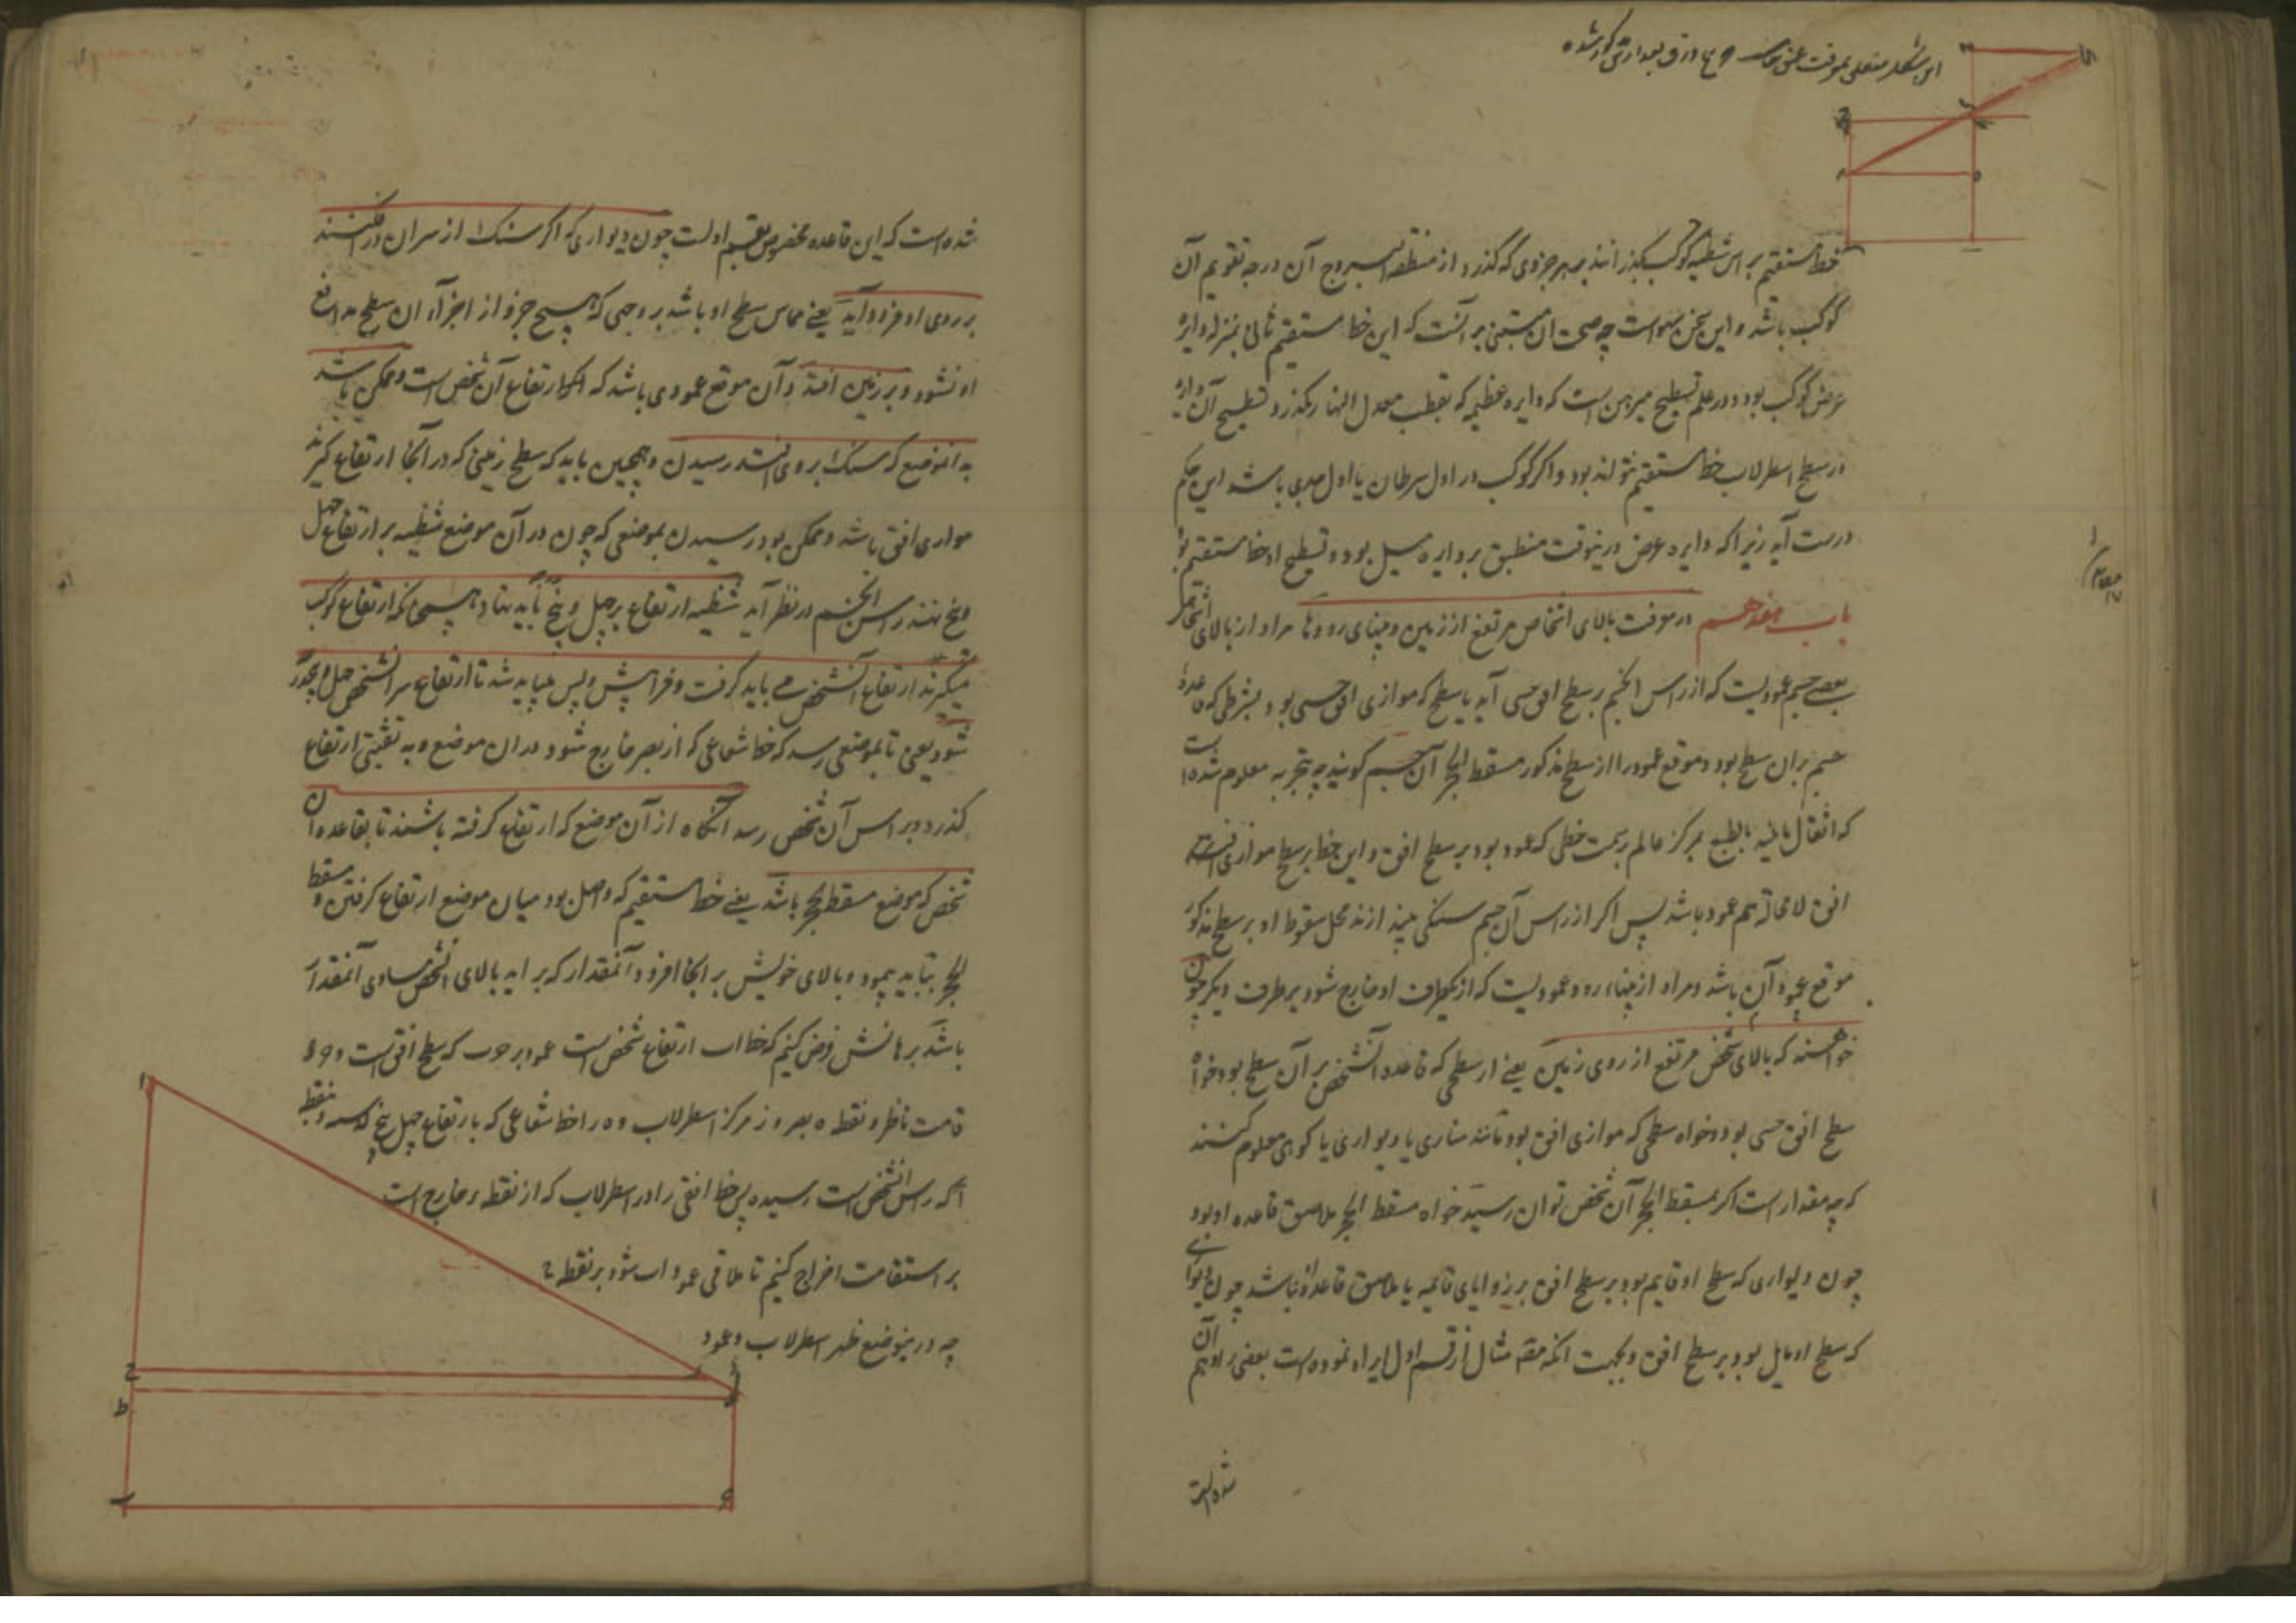 این شکل متعلق بمعرفت عمق چاه ورق بعد ازین مذکور شده
خط مستقیم بر اس شظیه کوکب بگذرانند بهر جزوی که گذرد از منطقة البروج آن درجه تقویم آن
کوکب باشد و این سخن سهو است چه صحت ان مبتنی بر آنست که این خط مستقیم ثانی بمنزله دایرۀ
عرض کوکب بود و در علم تسطیح مبرهن است که دایره عظیمه که بقطب معدل النهار نگذرد تسطیح آن دایرۀ
در سطح اسطرلاب خط مستقیم نتواند بود و اگر کوکب در اول سرطان یا اول جدی باشد این حکم
درست آید زیرا که دایره عرض درینوقت منطبق بر دایره میل بود و تسطیح او خط مستقیم بود
باب هفدهم در معرفت بالای اشخاص مرتفع از زمین و پهنای رودها مراد از بالای اشخاص
بعضی جسم عمودیست که از راس الجسم بر سطح افق حسی آید یا سطح که موازی افق حسی بود بشرطی که قاعدۀ
جسم بر ان سطح بود و موقع عمود را از سطح مذکور مسقط الحجر آن جسم گویند چه بتجربه معلوم شده است
که اثقال مایله بالطبع بمرکز عالم بسمت خطی که عمود بود بر سطح افق و این خط بر سطح موازی
افق لامحاله هم عمود باشد پس اگر از راس آن جسم سنگی بیندازند محل سقوط او بر سطح مذکور
موقع عمود آن باشد و مراد از پهناء رود عمودیست که از یکطرف او خارج شود بر طرف دیگر چون
خواهند که بالای شخص مرتفع از روی زمین یعنی از سطحی که قاعده آنشخص بر آن سطح بود خواه
سطح افق حسی بود و خواه سطحی که موازی افق بود مانند مناری یا دیواری یا کوهی معلوم کنند
که چه مقدار است اگر بمسقط الحجر آن شخص توان رسید خواه مسقط الحجر ملاصق قاعده او بود
چون دیواری که سطح او قایم بود بر سطح افق بر زوایای قائمه یا ملاصق قاعدۀ نباشد چون دیواری
که سطح او مایل بود بر سطح افق و بجهت انکه مص مثال از قسم اول ایراد نموده است بعضی را وهم آن
شده است
شده است که این قاعده مخصوص بقسم اولست چون دیواری که اگر سنگ از سر ان در افکنند
بر روی او فرود آید یعنی مماس سطح او باشد بر وجهی که هیچ جزو از اجزاء ان سطح مدافع
او نشود و بر زمین افتد و آن موقع عمودی باشد که ارتفاع آن شخص است و ممکن باشد
بدانموضع که سنگ بروی افتد رسیدن و همچنین باید که سطح زمینی که در آنجا ارتفاع گیرند
موازی افق باشد و ممکن بود رسیدن بموضعی که چون در آن موضع شظیه بر ارتفاع چهل
و پنج نهند راس الجسم در نظر آید شظیه ارتفاع بر چهل و پنج باید نهاد و همچنانکه ارتفاع کوکب
میگیرند ارتفاع آنشخص می باید گرفت و فرا پیش و پس میباید شد تا ارتفاع سر آنشخص چهل و پنجدرجه
شود یعنی تا بموضعی رسد که خط شعاعی که از بصر خارج شود در ان موضع و به ثقبتی ارتفاع
گذرد و بر راس آن شخص رسد آنگاه از آن موضع که ارتفاع گرفته باشند تا بقاعده ان
شخص که موضع مسقط الحجر باشد یعنی خط مستقیم که واصل بود میان موضع ارتفاع گرفتن و مسقط
الحجر بباید پیمود و بالای خویش بر انجا افزود آنمقدار که بر اید بالای آنشخص مساوی آنمقدار
باشد برهانش فرض کنیم که خط اب ارتفاع شخص است عمود بر ب که سطح افق است و
قامت ناظر و نقطه ه بصر و ز مرکز اسطرلاب و ه ر ا خط شعاعی که بارتفاع چهل و پنج بنقطه
ا که راس آنشخص است رسیده پس خط افقی را در اسطرلاب که از نقطه ر خارج است
بر استقامت اخراج کنیم تا ملاقی عمود اب شود بر نقطه ح
چه درینموضع ظهر اسطرلاب و عمود